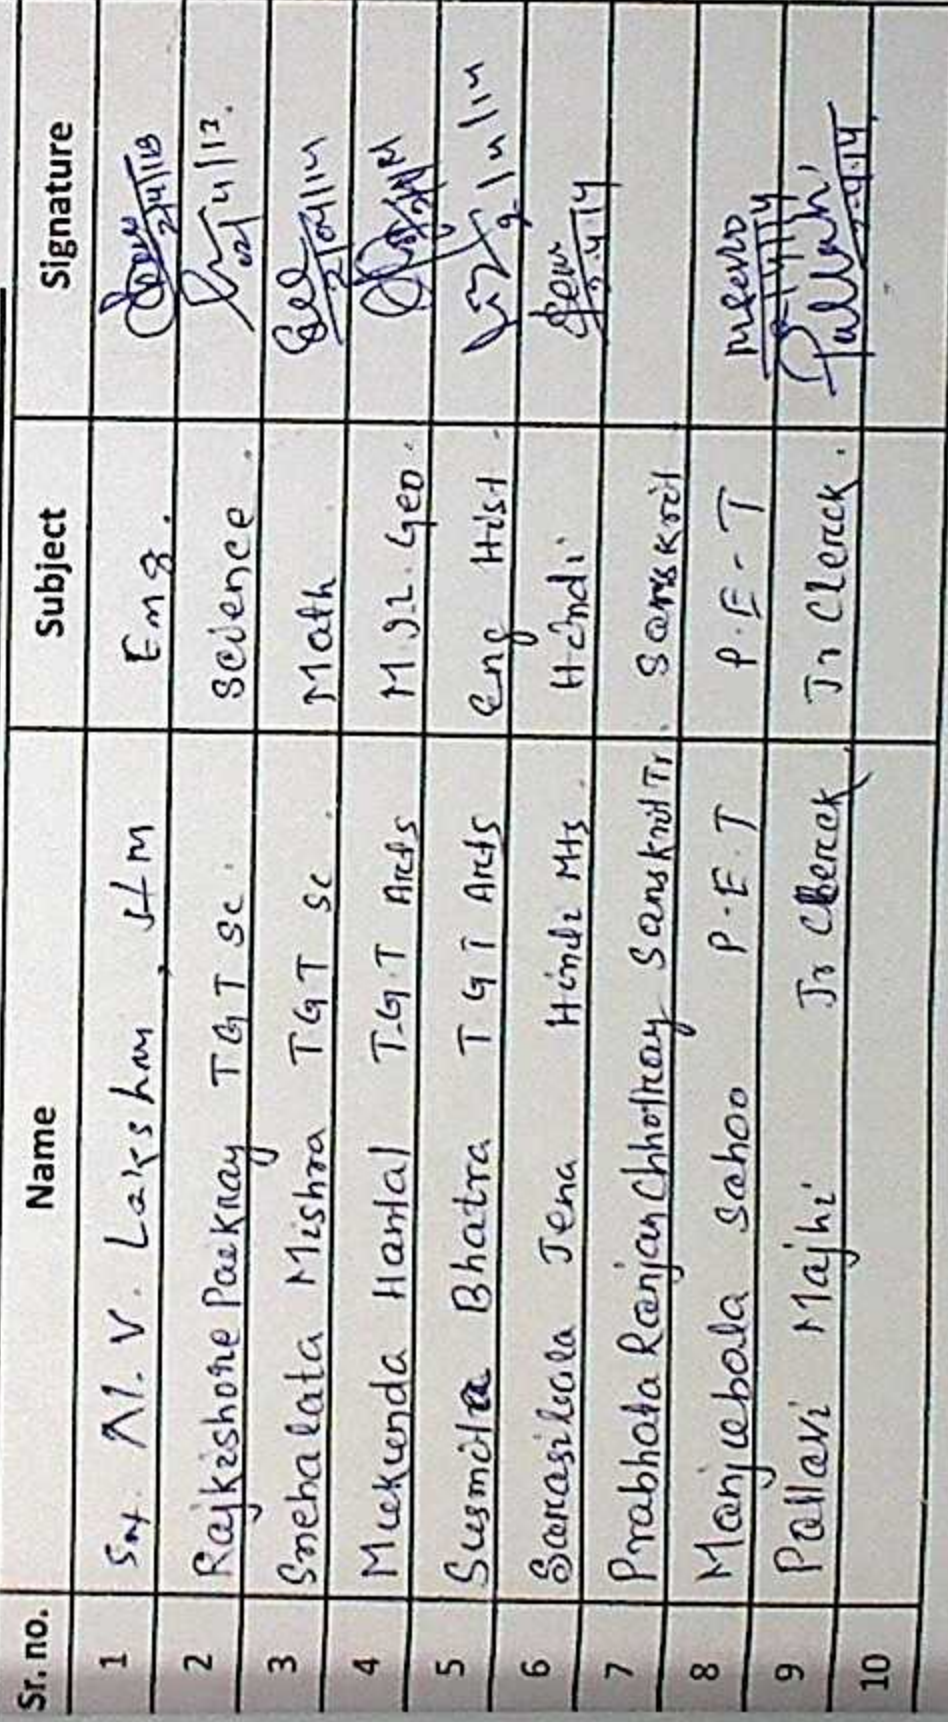 Sr. no. Name Subject Signature
1 Smt. M. V. Lakshmi, H M Eng.
2 Rajkishore Paikray TGT Sc. Science. 02/4/13.
3 Snehalata Mishra TGT Sc. Math 2/04/14
4 Mukunda Hantal T.G.T Arts M.I.L. Geo.
5 Susmita Bhatra TGT Arts Eng Hist. 2/4/14
6 Sarasibala Jena Hindi Mts Hindi 2.4.14
7 Prabhata Ranjan Chhotray Sanskrit Tr. Sanskrit
8 Manjubala Sahoo P.E.T P.E.T 2/4/14
9 Pallavi Majhi Jr Clerck Jr Clerck. Pallavi 2.4.14
10